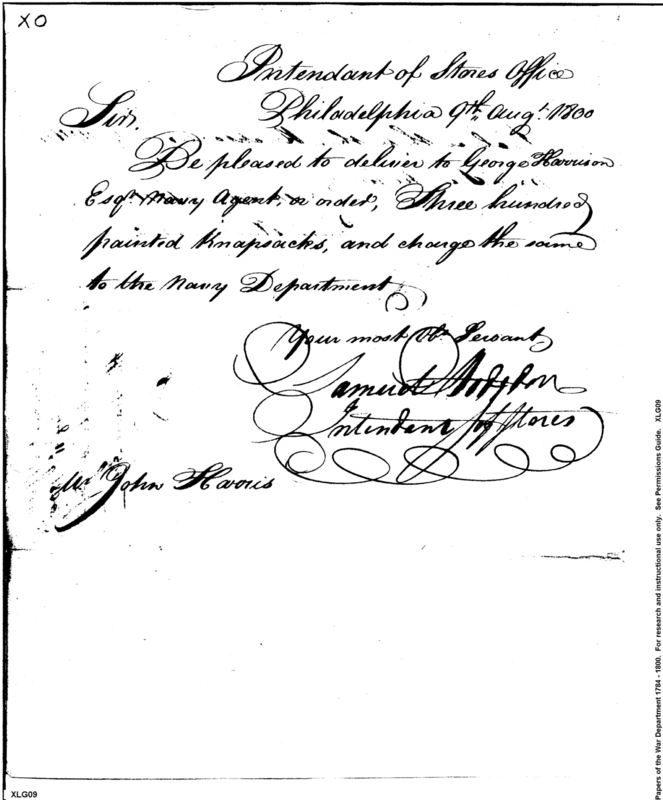 XO
Intendant of Stores Office
Philadelphia 9th, Augt. 1800
Sir.
Be pleased to deliver to George Harrison
Esqr. Navy Agent, or order, Three hundred
painted Knapsacks, and charge the same
to the Navy Department
Your most Obt. Servant,
Samuel Hodgdon
Intendant of Stores
Mr. John Harris
Papers of the War Department 1784 - 1800. For research and instructional use only. See Permissions Guide. XLG09
XLG09